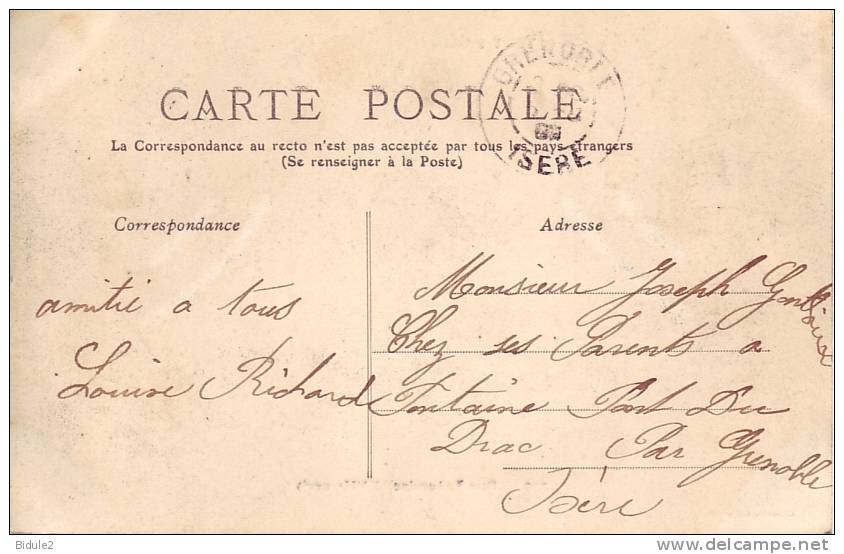 GRENOBLE
ISERE
CARTE POSTALE
La Correspondance au recto n'est pas acceptée par tous les pays étrangers
(Se renseigner à la Poste)
Correspondance
amitié a tous
Louise Richard
Adresse
Monsieur Joseph
Chez ses Parents a
Fontaine Pont Du
Drac Par Grenoble
Isère
Bidule2
www.delcampe.net